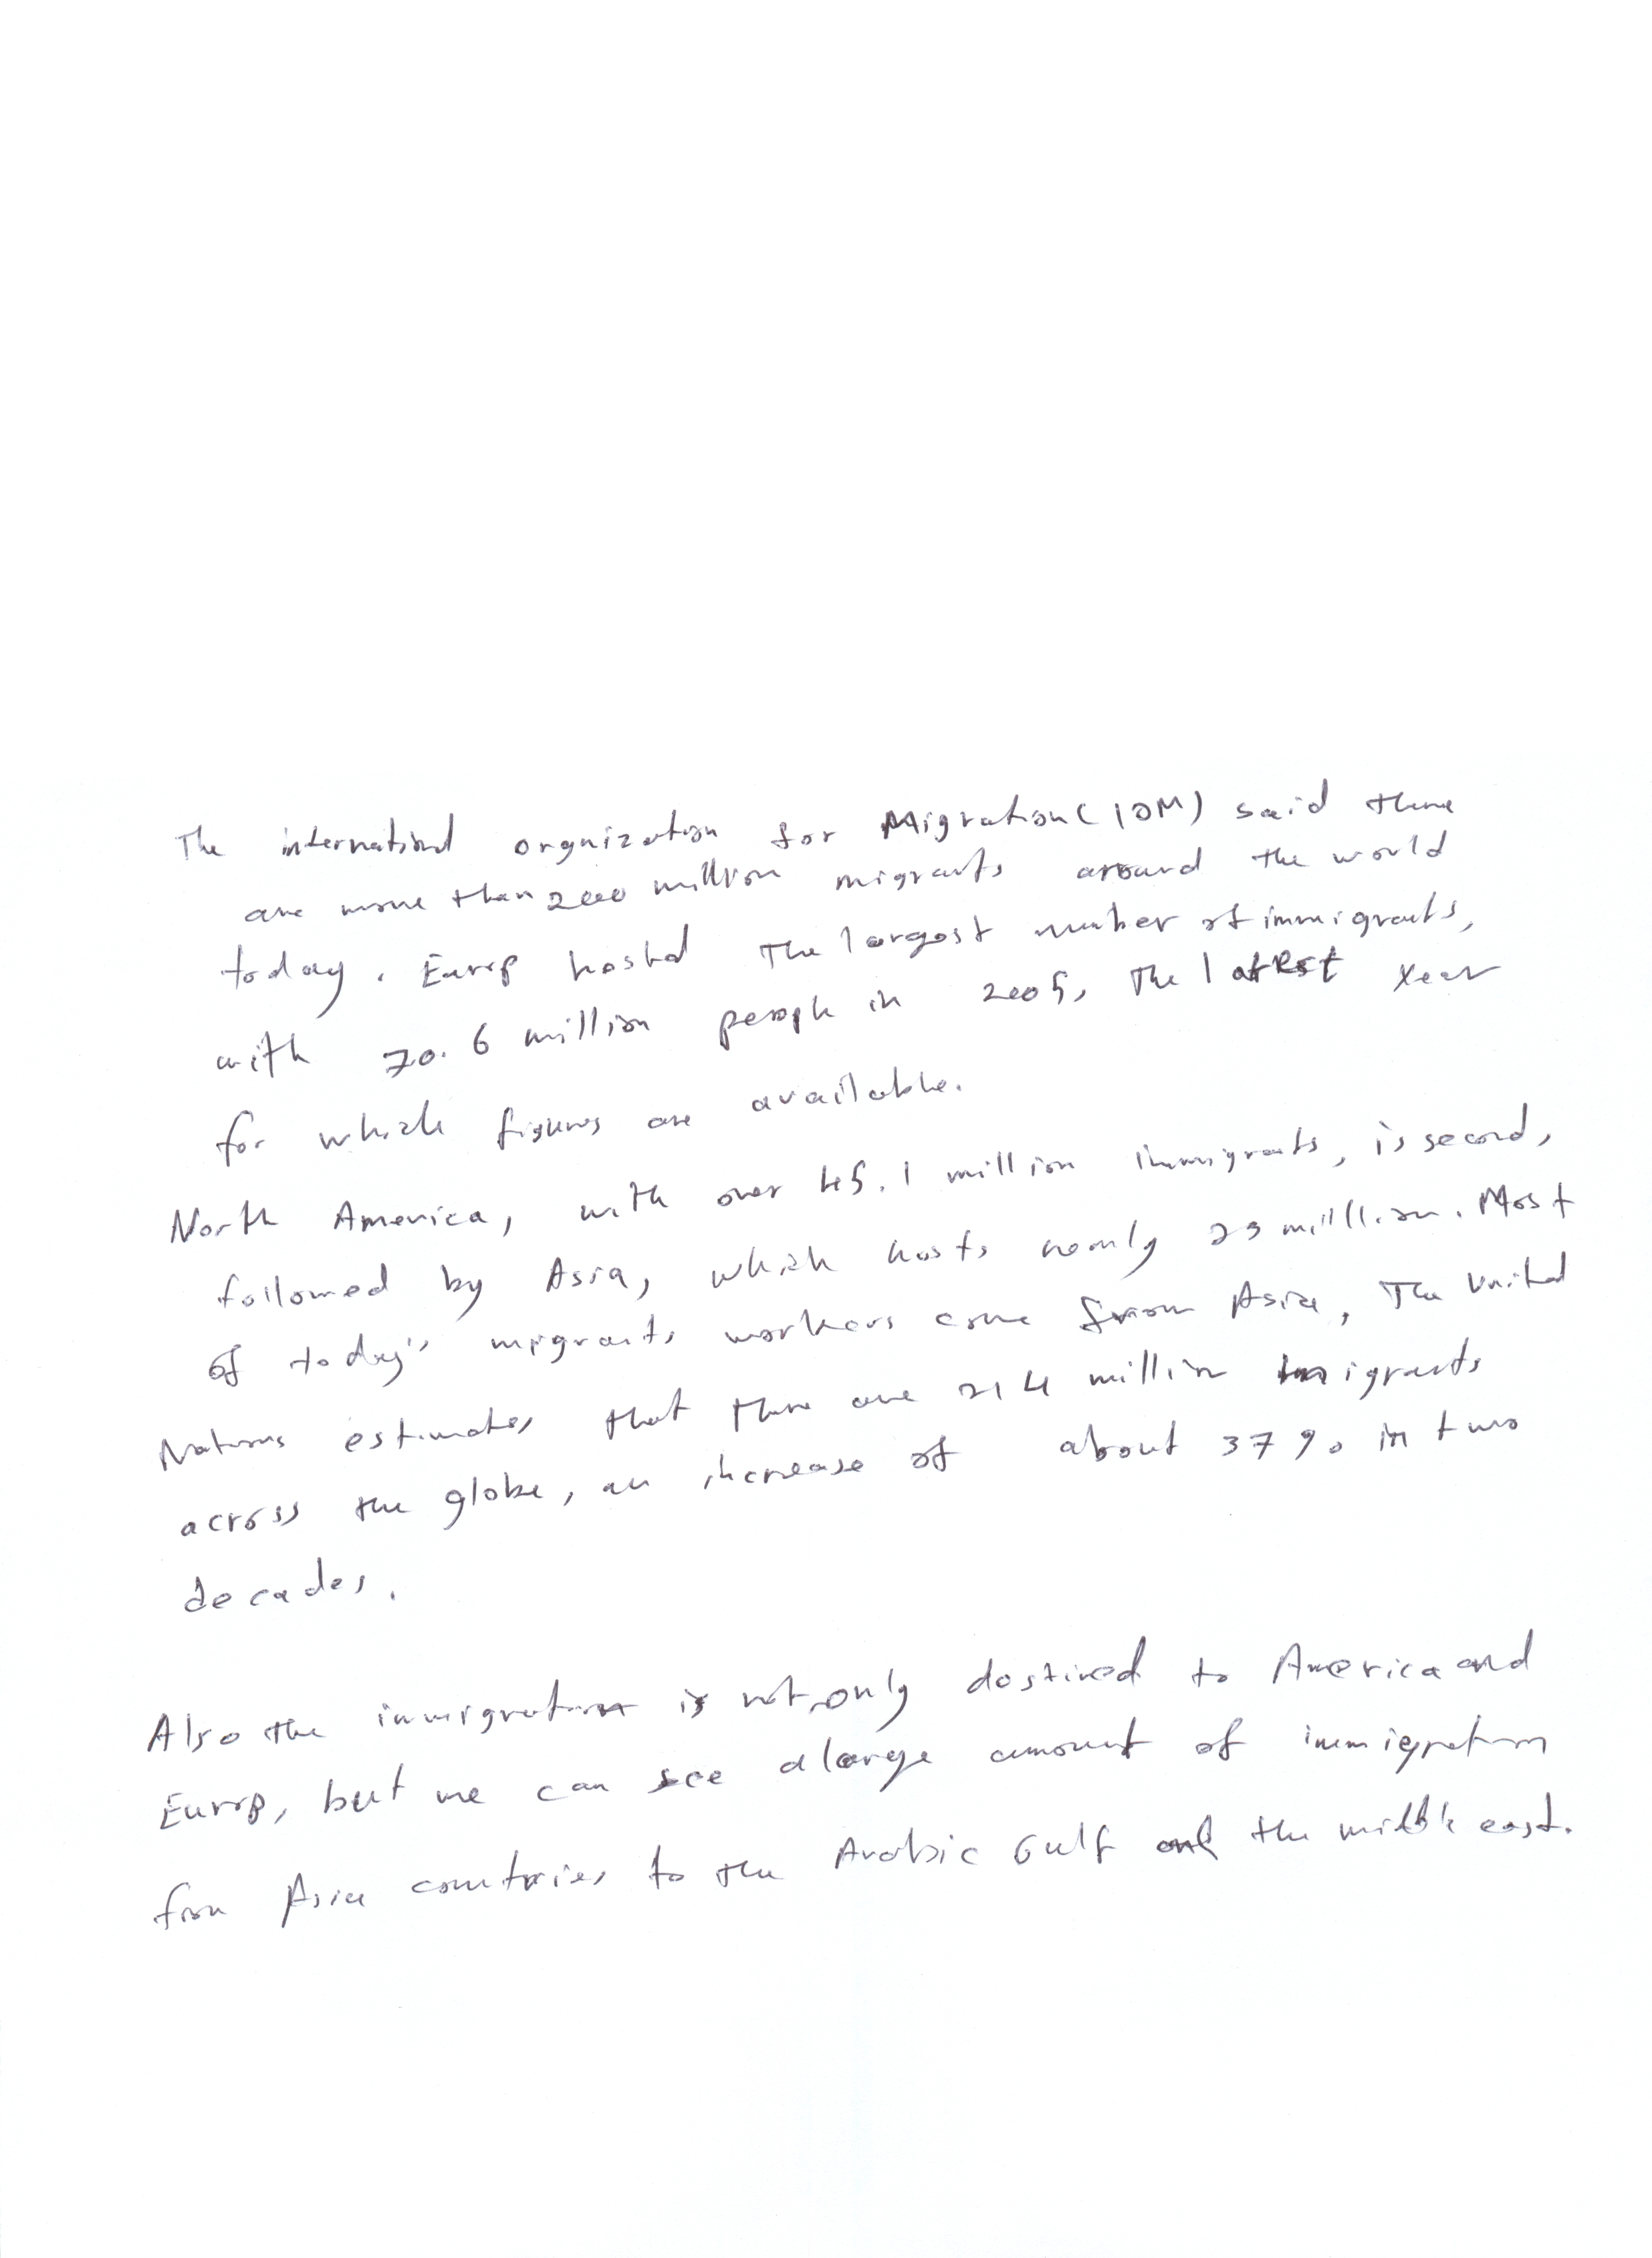 The international orgnization for Migration (IOM) said there
are more than 2000 million migrants around the world
today. Europ hosted The largest number of immigrants,
with 70.6 million people in 2005, The latest year
for which figures are available.
North America, with over 45.1 million immigrants, is second,
followed by Asia, which hosts nearly 25 milllion. Most
of today's migrants workers come from Asia, The United
Nations estimates that there are 214 million migrants
across the globe, an increase of about 37% in two
decades.
Also the immigration is not only destined to America and
Europ, but we can see a large amount of immigration
from Asia countries to the Arabic Gulf and the middle east.